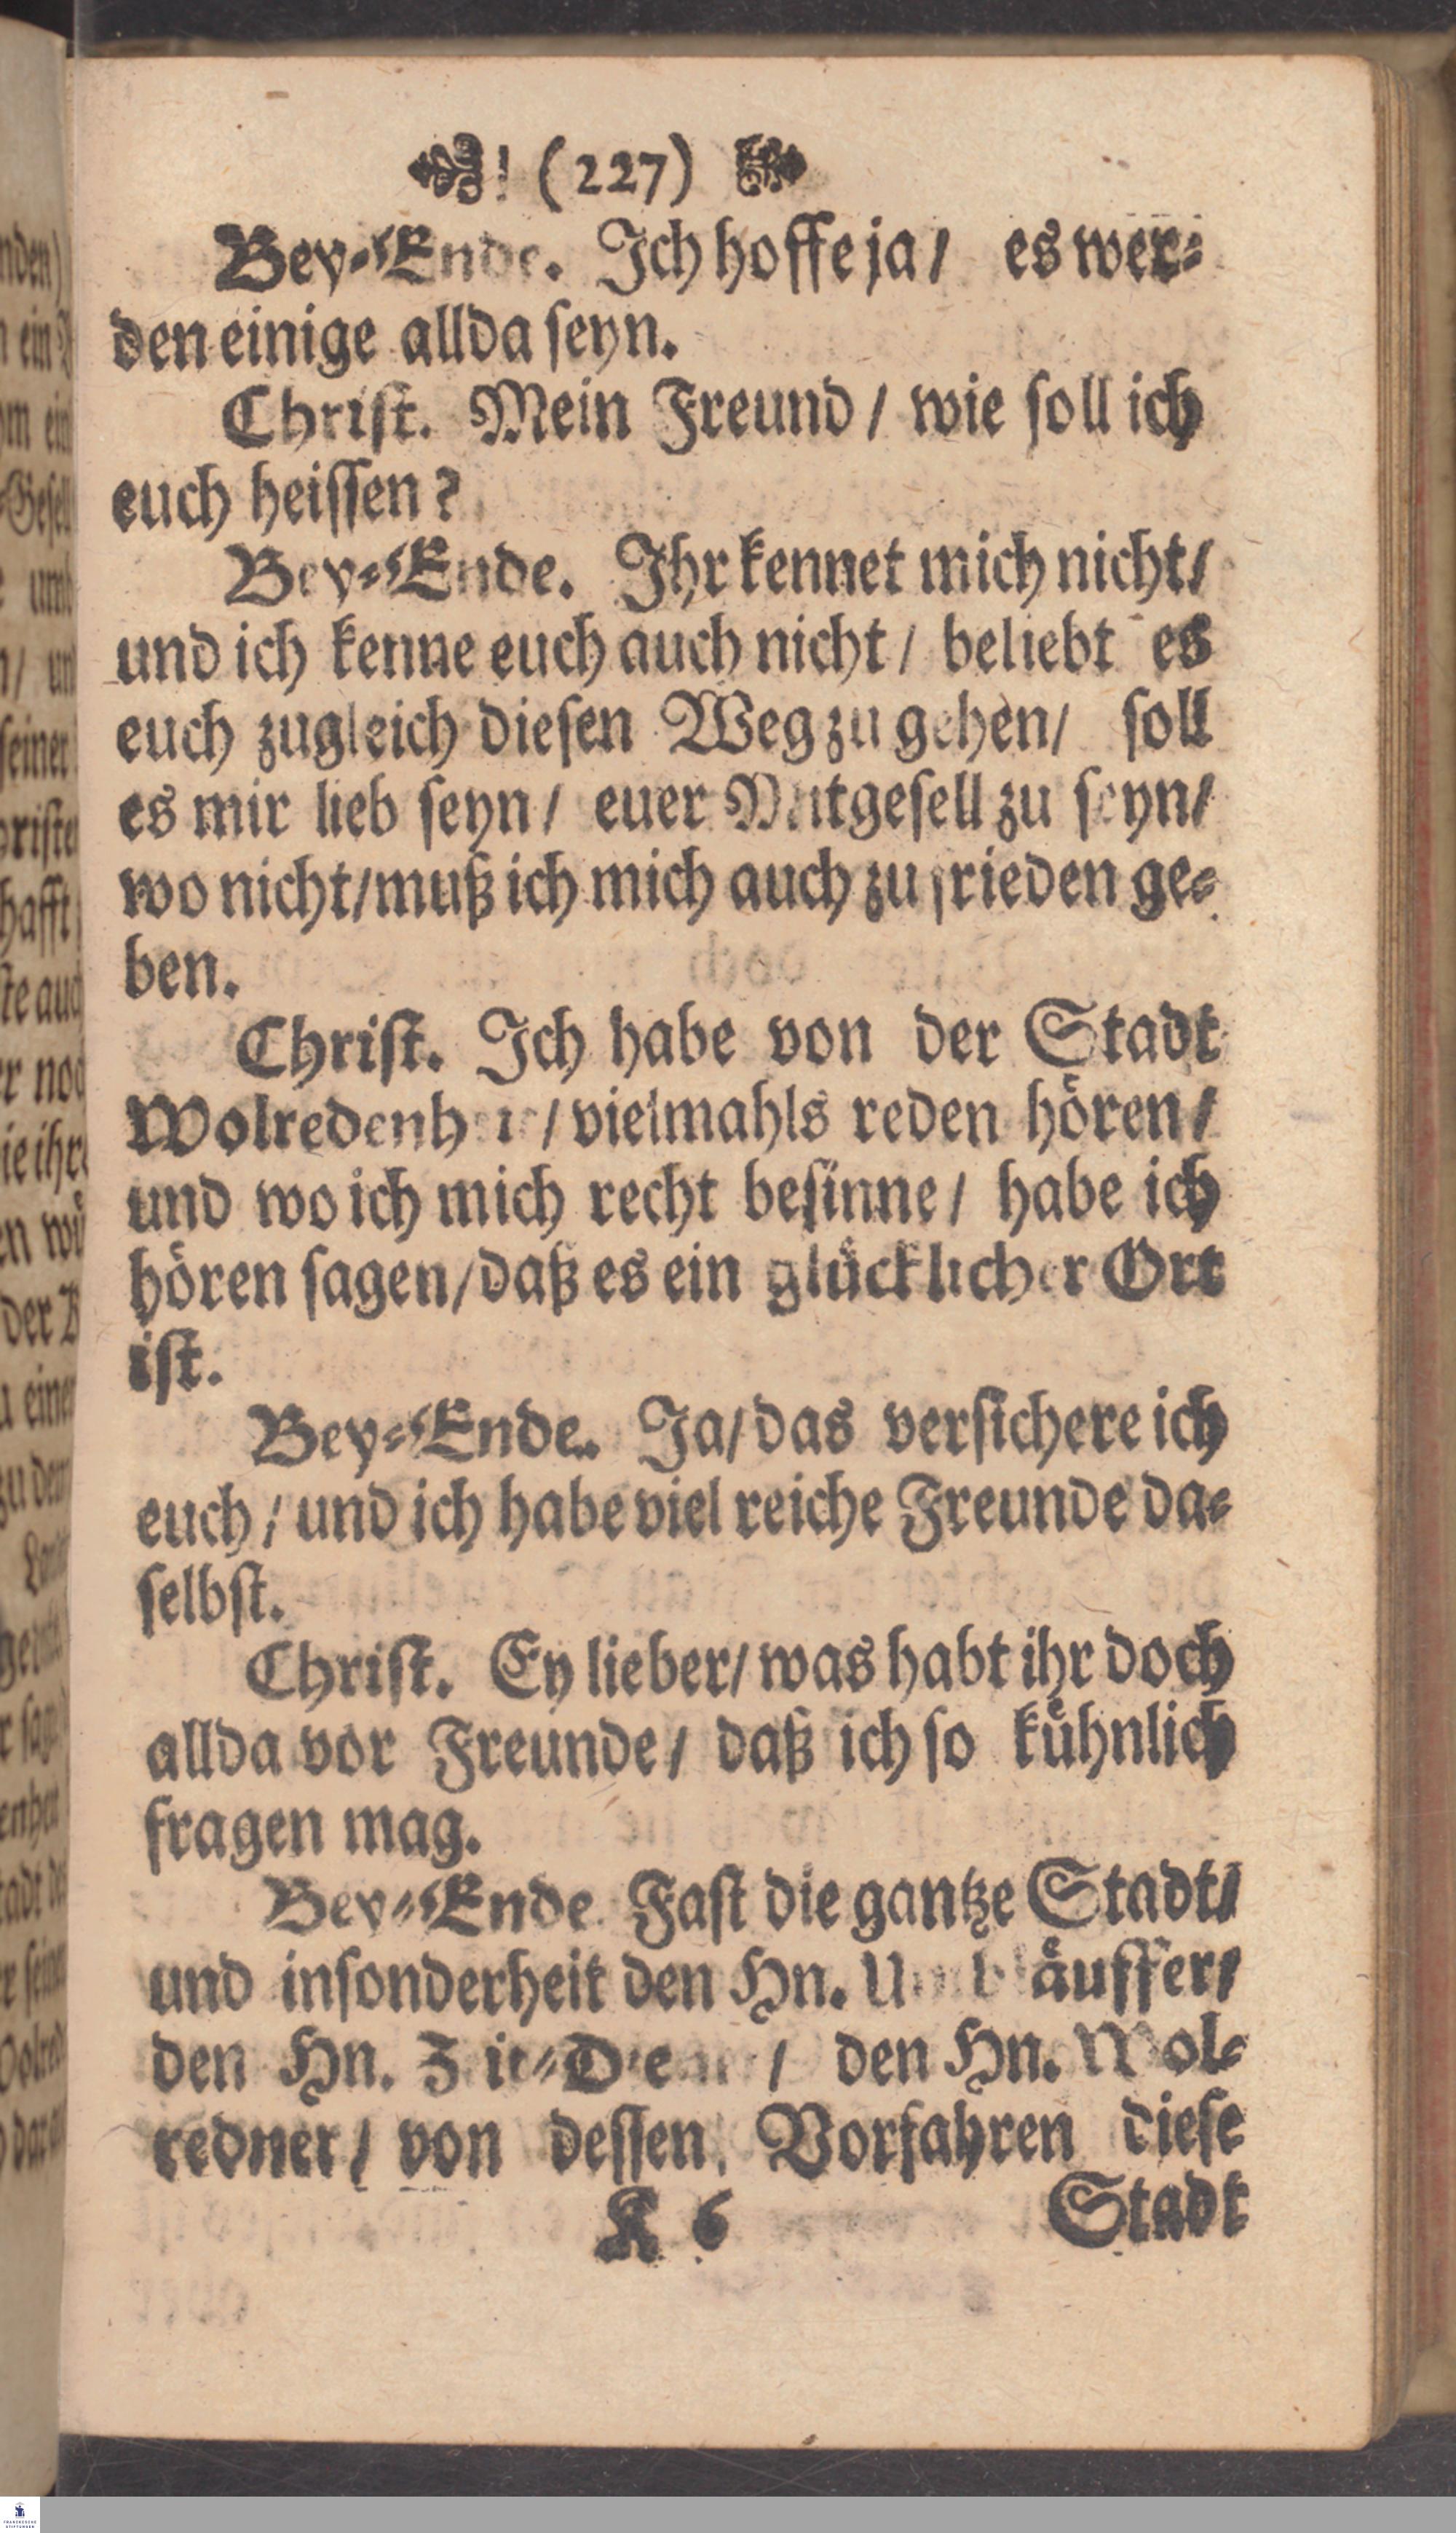 ! (227)
Bey-Ende. Ich hoffe ja/ es wer-
den einige allda seyn.
Christ. Mein Freund/ wie soll ich
euch heissen?
Bey-Ende. Ihr kennet mich nicht/
und ich kenne euch auch nicht/ beliebt es
euch zugleich diesen Weg zu gehen/ soll
es mir lieb seyn/ euer Mitgesell zu seyn/
wo nicht/muß ich mich auch zu frieden ge-
ben.
Christ. Ich habe von der Stadt
vielmahls reden hören/
und wo ich mich recht besinne/ habe ich
hören sagen/daß es ein glücklicher Ort
ist.
Bey-Ende. Ja/das versichere ich
euch/und ich habe viel reiche Freunde da-
selbst.
Christ. Ey lieber/was habt ihr doch
allda vor Freunde/ daß ich so kühnlich
fragen mag.
Bey-Ende. Fast die gantze Stadt/
und insonderheit den Hn.
den Hn. den Hn. Wol-
redner/ von dessen Vorfahren diese
K 6 Stadt